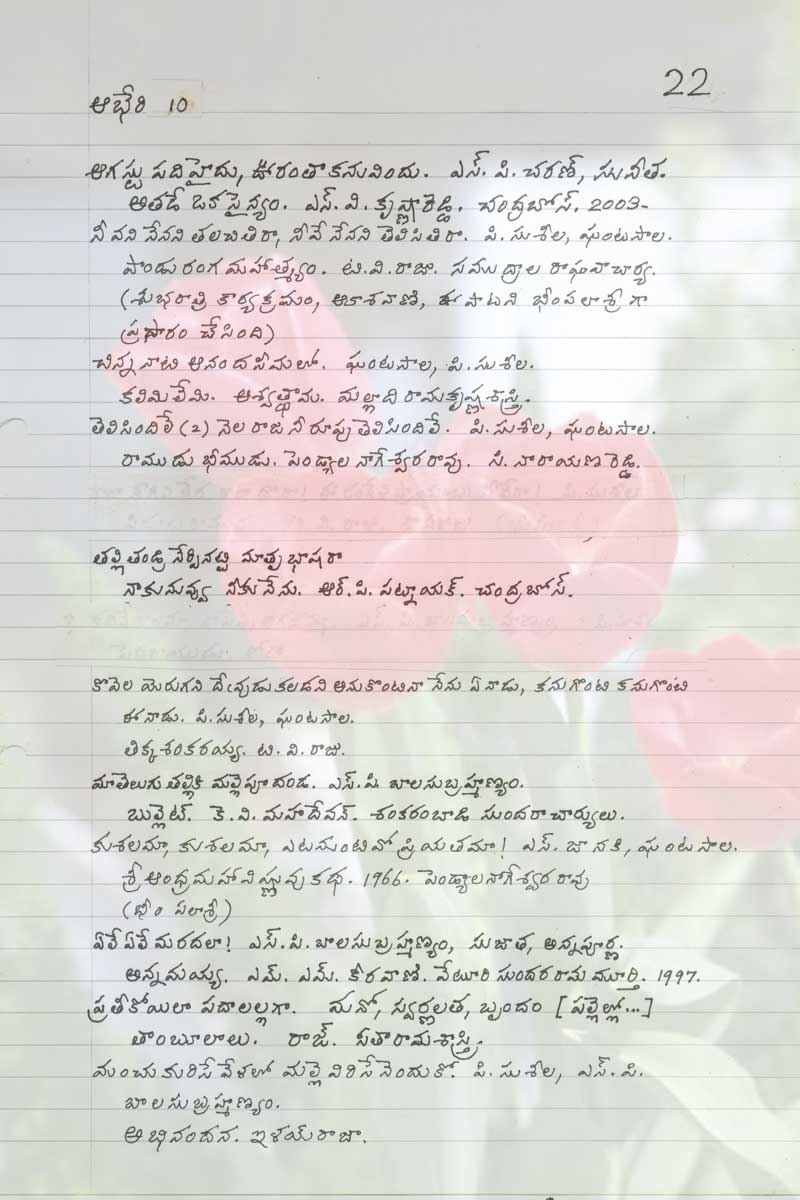 22
ఆభేరి 10
ఆగస్టు పదిహైదు, ఊరంతా కనువిందు. ఎస్. పి. చరణ్, సునీత.
అతడే ఒక సైన్యం. ఎస్. వి. కృష్ణారెడ్డి. చంద్రబోస్. 2003-
నీవని నేనని తలచితిరా, నీవే నేనని తెలిసితిరా. పి. సుశీల, ఘంటసాల.
పాండురంగ మహాత్మ్యం. టి. వి. రాజు. సముద్రాల రాఘవాచార్య.
(శుభరాత్రి కార్యక్రమం, ఆకాశవాణి, ఈ పాటని భీంపలాశ్రీ గా
ప్రసారం చేసింది)
చిన్ననాటి ఆనందసీమలో. ఘంటసాల, పి. సుశీల.
కలిమిలేమి. అశ్వత్థామ. మల్లాది రామకృష్ణశాస్త్రి.
తెలిసిందిలే (2) నెలరాజ నీ రూపు తెలిసిందిలే. పి. సుశీల, ఘంటసాల.
రాముడు భీముడు. పెండ్యాల నాగేశ్వరరావు. సి. నారాయణరెడ్డి.
తల్లితండ్రి నేర్పినట్టి మాతృభాషరా
నాకు నువ్వు నీకు నేను. ఆర్. పి. పట్నాయక్. చంద్రబోస్.
కొవెల యెరుగని దేవుడు కలడని అనుకొంటినా నేను ఏనాడు, కనుగొంటి కనుగొంటి
ఈనాడు. పి. సుశీల, ఘంటసాల.
తిక్కశంకరయ్య. టి. వి. రాజు.
మాతెలుగుతల్లికి మల్లెపూదండ. ఎస్.పి. బాలసుబ్రహ్మణ్యం.
బుల్లెట్. కె. వి. మహాదేవన్. శంకరంబాడి సుందరాచార్యులు.
కుశలమా, కుశలమా, ఎటనుంటివో ప్రియతమా! ఎస్. జానకి, ఘంటసాల.
శ్రీ ఆంధ్రమహావిష్ణువు కథ. 1966. పెండ్యాల నాగేశ్వరరావు
(భీం పలాశ్రీ)
ఏలే ఏలే మరదలా! ఎస్. పి. బాలసుబ్రహ్మణ్యం, సుజాత, అన్నపూర్ణ.
అన్నమయ్య. ఎమ్. ఎమ్. కీరవాణి. వేటూరి సుందరరామమూర్తి. 1997.
ప్రతీకోయిలా పదాలల్లగా. మనో, స్వర్ణలత, బృందం [పల్లెల్లో...]
తాంబూలాలు. రాజ్. సీతారామశాస్త్రి.
మంచుకురిసే వేళలో మల్లె విరిసేనెందుకో. పి. సుశీల, ఎస్. పి.
బాలసుబ్రహ్మణ్యం.
అభినందన. ఇళయ్‌రాజా.